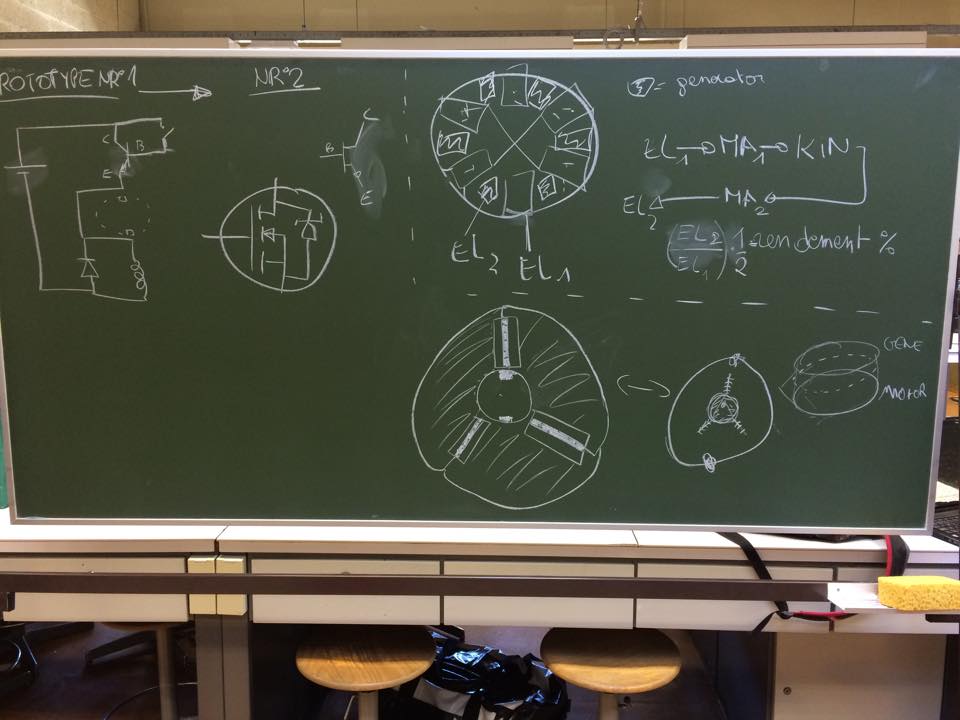 ROTOTYPE NR°1
NR°2
C
B
E
C
B
E
EL2
EL1
= generator
EL1 → MA1 → KIN
EL2 ← MA2
(EL2/EL1) · 1/2 = rendement %
GENE
MOTOR